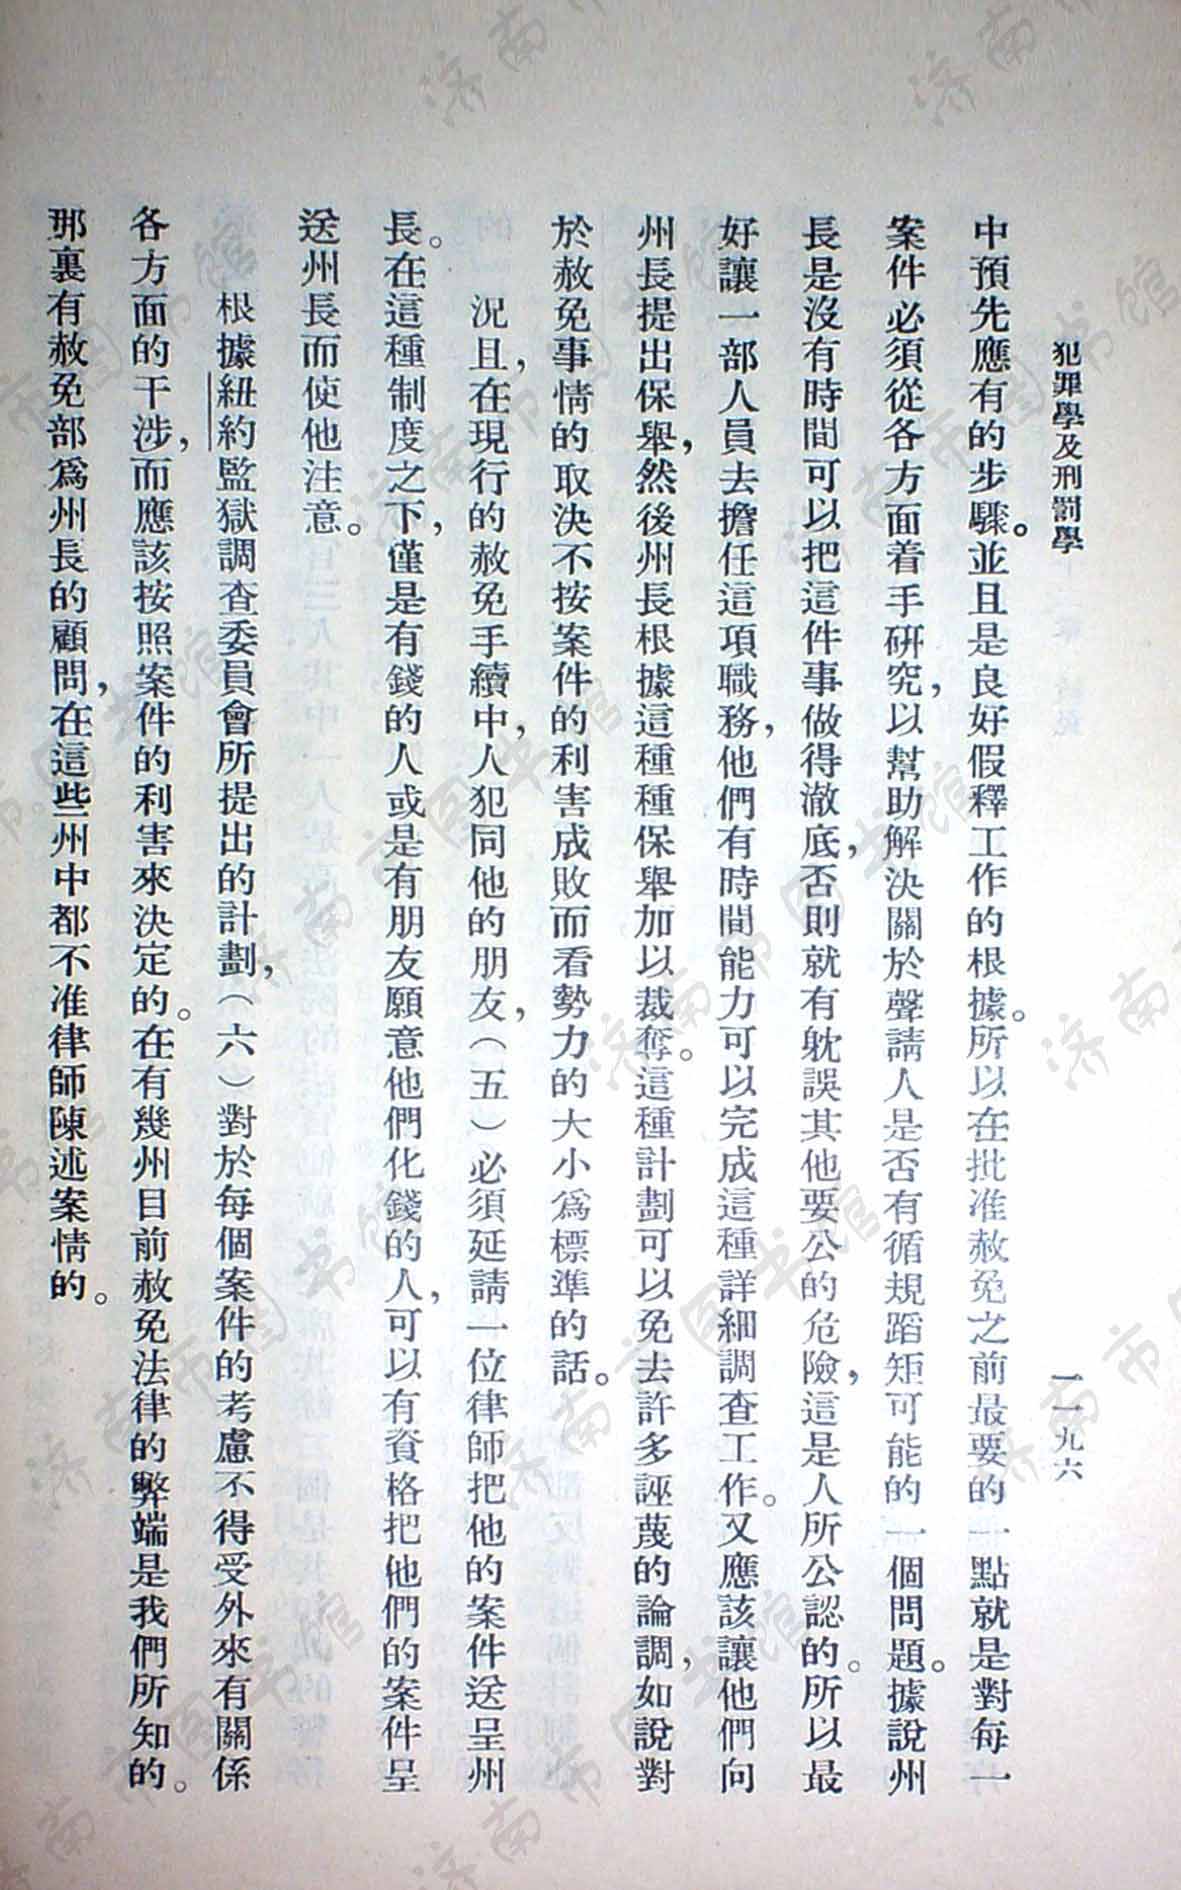 犯罪學及刑罰學
一一九六
中預先應有的步驟。並且是良好假釋工作的根據。所以在批准赦免之前最要的一點就是對每一
案件必須從各方面着手研究，以幫助解決關於聲請人是否有循規蹈矩可能的一個問題。據說州
長是沒有時間可以把這件事做得澈底，否則就有躭誤其他要公的危險，這是人所公認的。所以最
好讓一部人員去擔任這項職務，他們有時間能力可以完成這種詳細調查工作。又應該讓他們向
州長提出保舉，然後州長根據這種種保舉加以裁奪。這種計劃可以免去許多誣蔑的論調，如說對
於赦免事情的取決不按案件的利害成敗而看勢力的大小爲標準的話。
況且，在現行的赦免手續中，人犯同他的朋友，（五）必須延請一位律師把他的案件送呈州
長。在這種制度之下，僅是有錢的人或是有朋友願意他們化錢的人，可以有資格把他們的案件呈
送州長而使他注意。
根據紐約監獄調查委員會所提出的計劃，（六）對於每個案件的考慮不得受外來有關係
各方面的干涉，而應該按照案件的利害來決定的。在有幾州目前赦免法律的弊端是我們所知的。
那裏有赦免部爲州長的顧問，在這些州中都不准律師陳述案情的。
济南市图书馆